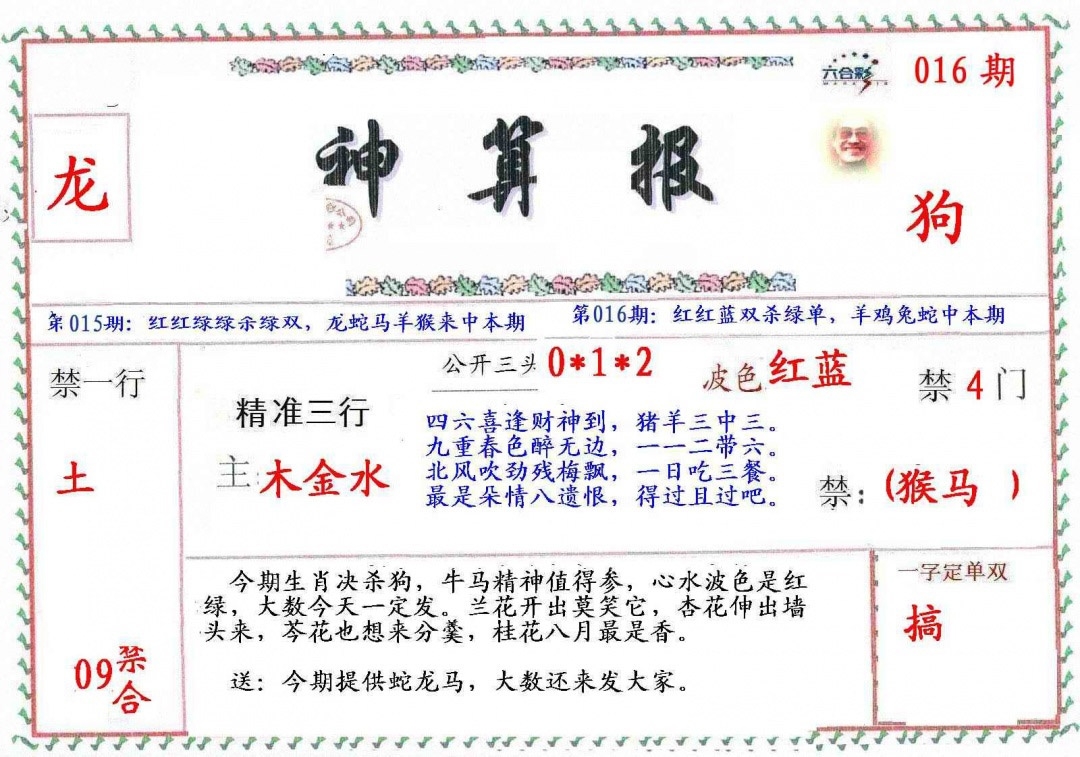 六合彩
016 期
神算报
龙
狗
第015期：红红绿绿杀绿双，龙蛇马羊猴来中本期
第016期：红红蓝双杀绿单，羊鸡兔蛇中本期
禁一行
土
09禁合
公开三头 0*1*2
波色 红蓝
禁 4 门
精准三行
主：木金水
四六喜逢财神到，猪羊三中三。
九重春色醉无边，一一二带六。
北风吹劲残梅飘，一日吃三餐。
最是朵情八遗恨，得过且过吧。
禁：(猴马 )
今期生肖决杀狗，牛马精神值得参，心水波色是红
绿，大数今天一定发。兰花开出莫笑它，杏花伸出墙
头来，芩花也想来分羹，桂花八月最是香。
送：今期提供蛇龙马，大数还来发大家。
一字定单双
搞